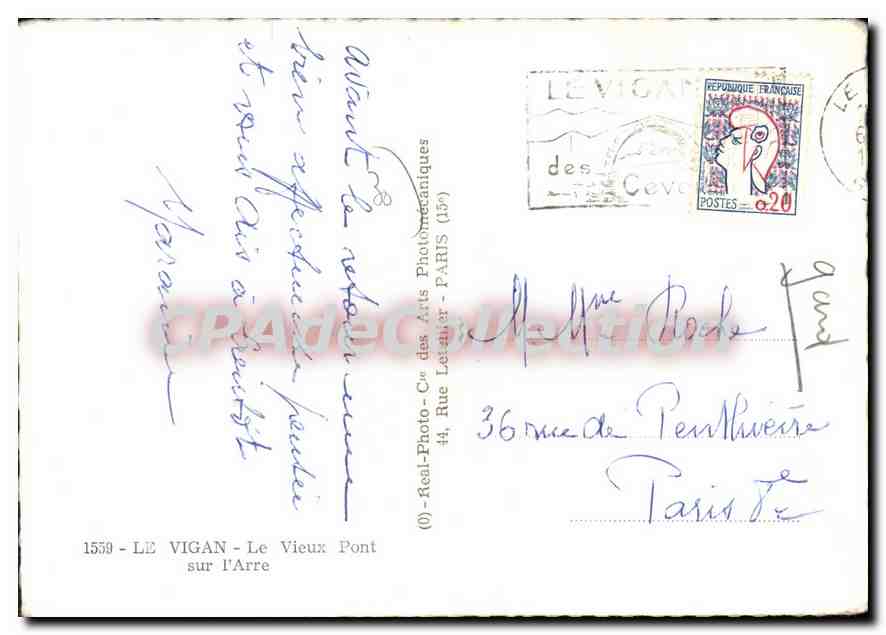 avant le retour une
bien affectueuse pensée
et vous dis à bientôt
(0) - Real-Photo - Cie des Arts Photomécaniques
44, Rue Letellier - PARIS (15e)
LE VIGAN
des
Ceve
REPUBLIQUE FRANÇAISE
POSTES
0,20
LE
gard
M. Mme Roche
36 rue de Penthièvre
Paris 8e
1559 - LE VIGAN - Le Vieux Pont
sur l'Arre
CPAdeCollection